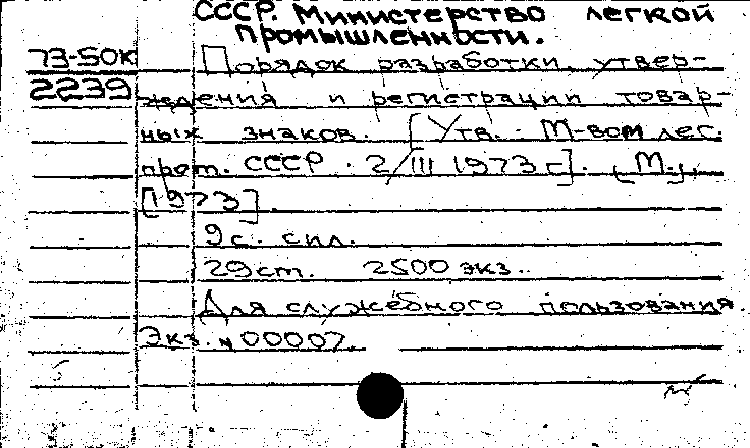 СССР. Министерство легкой
промышленности.
73-50к Порядок разработки, утвер-
2239 ждения и регистрации товар-
ных знаков. [Утв. М-вом лег.
пром. СССР. 2/III 1973 г.]. [М.],
[1973].
9 с. сил.
29 см. 2500 экз.
Для служебного пользования.
Экз. № 00007.